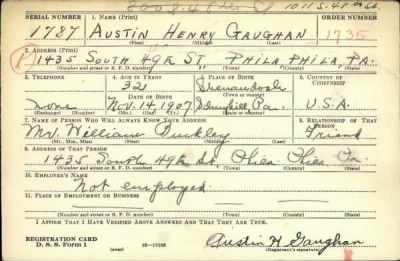 1011 S. 48th St.
SERIAL NUMBER 1. NAME (Print) ORDER NUMBER
1787 AUSTIN HENRY GAUGHAN 1735
(First) (Middle) (Last)
2. ADDRESS (Print)
1435 SOUTH 49th ST, PHILA. PHILA. PA.
(Number and street or R. F. D. number) (Town) (County) (State)
3. TELEPHONE 4. AGE IN YEARS 5. PLACE OF BIRTH 6. COUNTRY OF CITIZENSHIP
32 Shenandoah
DATE OF BIRTH (Town or county)
None Nov. 14, 1907 Schuylkill Pa. U.S.A.
(Exchange) (Number) (Mo.) (Day) (Yr.) (State or country)
7. NAME OF PERSON WHO WILL ALWAYS KNOW YOUR ADDRESS 8. RELATIONSHIP OF THAT PERSON
Mr. William Friend
(Mr., Mrs., Miss) (First) (Middle) (Last)
9. ADDRESS OF THAT PERSON
1435 South 49th St. Phila. Phila. Pa.
(Number and street or R. F. D. number) (Town) (County) (State)
10. EMPLOYER'S NAME
Not employed
11. PLACE OF EMPLOYMENT OR BUSINESS
(Number and street or R. F. D. number) (Town) (County) (State)
I AFFIRM THAT I HAVE VERIFIED ABOVE ANSWERS AND THAT THEY ARE TRUE.
REGISTRATION CARD
D. S. S. Form 1 (over) 16—17105 Austin H Gaughan
(Registrant's signature)